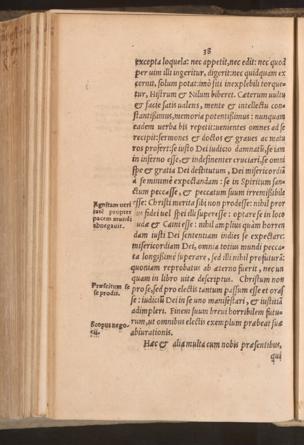 38
excepta loquela: nec appetit, nec edit: nec quod
per uim illi ingeritur, digerit: nec quidquam ex
cernit, solum potat: imò siti inexplebili torque-
tur, Histrum & Nilum biberet. Cæterum uultu
& facie satis ualens, mente & intellectu con-
stantissimus, memoria potentissimus: nunquam
eadem uerba bis repetit: uenientes omnes ad se
recipit: sermones & doctos & graues ac matu
ros profert: se iusto Dei iudicio damnatū, se iam
in inferno esse, & indesinenter cruciari, se omni
spe & gratia Dei destitutum, Dei misericordiā
à se minimè expectandam: se in Spiritum san-
ctum peccasse, & peccatum suum irremissibile
esse: Christi merita sibi non prodesse: nihil pror
sus fidei uel spei illi superesse: optare se in loco
Iudæ & Caini esse: nihil amplius quàm horren
dam iusti Dei sententiam indies se expectare:
misericordiam Dei, omnia totius mundi pecca-
ta longissimè superare, sed illi nihil profuturā:
quoniam reprobatus ab æterno fuerit, nec un
quam in libro uitæ descriptus. Christum non
pro se, sed pro electis tantùm passum esse et oras
se: iudiciū Dei in se uno manifestari, & iustitiā
adimpleri. Finem suum breui horribilem futu-
rum, ut omnibus electis exemplum præbeat suæ
abiurationis.
Hæc & alia multa cum nobis præsentibus,
qui
Agnitam ueri
tatē propter
pacem mundi
abnegauit.
Præscitum se
se prodit.
Scopus nego-
tij.